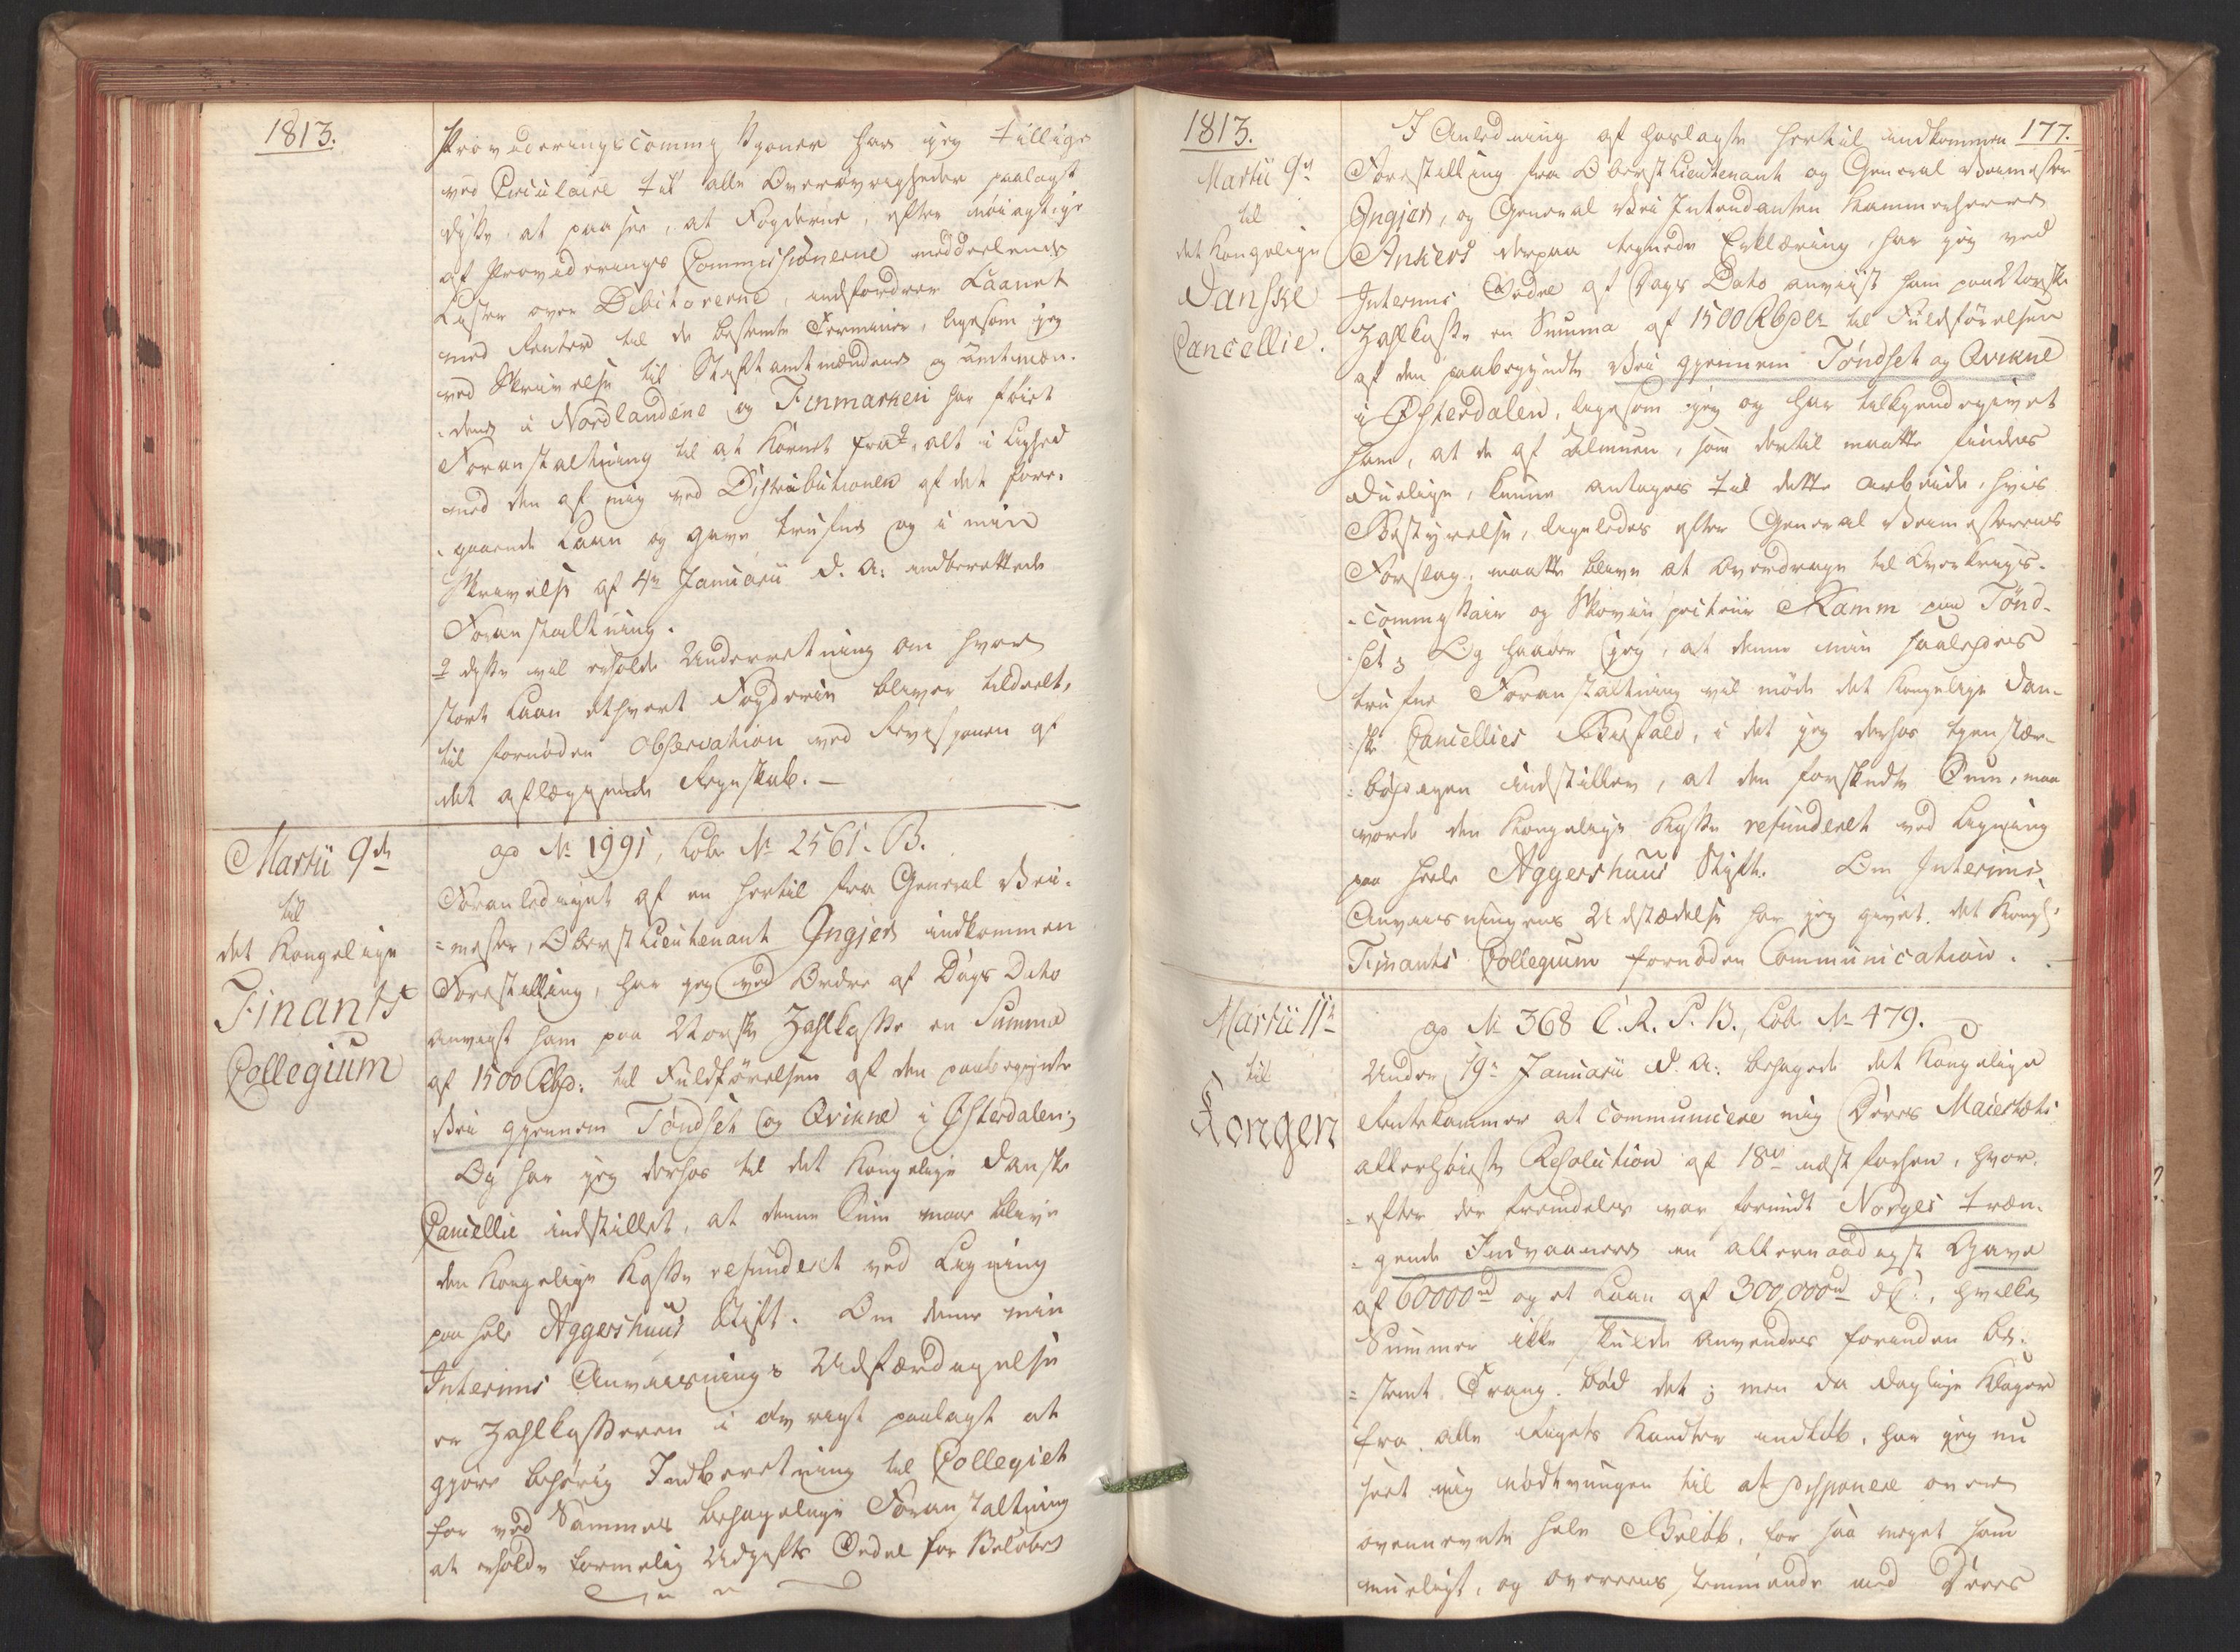 1813.
Provideringscommissioner har jeg tillige
ved Circulaire til alle Overøvrigheder paalagt
disse, at paasee, at Fogderne, efter nøiagtige
af Providerings Commissionerne meddeelende
Lister over Debitorerne, indfordrer Laanet
med Renter til de bestemte Terminer, ligesom jeg
ved Skrivelse til Stiftamtmændene og Amtmæn-
dene i Nordlandene og Finmarken har føiet
Foranstaltning til at Kornet fra, alt i Lighed
med den af mig ved Distributionen af det fore-
gaaende Laan og Gave trufne og i min
Skrivelse af 4de Januarii d. A. indberettede
Foranstaltning.
disse vil erholde Underretning om hvor
stort Laan ethvert Fogderie bliver tildeelt,
til fornøden Observation ved Revisionen af
det aflæggende Regnskab. —
Martii 9de
til
det Kongelige
Finants
Collegium
ad No 1991, Løb. No 2561. B.
Foranlediget af en hertil fra General Vei-
=mester, Oberst Lieutenant Ingier indkommen
Forestilling, har jeg ved Ordre af Dags Dato
anviist ham paa Norske Zahlkasse en Summa
af 1500 Rbd. til Fuldførelsen af den paabegyndte
Vei gjennem Tøndset og Qvikne i Østerdalen;
Og har jeg derhos til det Kongelige Danske
Cancellie indstillet, at denne Sum maae blive
den Kongelige Kasse refunderet ved Ligning
paa hele Aggershuus Stift. Om denne min
Interims Anviisnings Udfærdigelse
er Zahlkasseren i øvrigt paalagt at
gjøre behørig Indberetning til Collegiet
for ved Sammes behagelige Foranstaltning
at erholde formelig Udgifts Ordre for Beløbet
1813.
177.
Martii 9de
til
det Kongelige
Danske
Cancellie.
I Anledning af hoslagte hertil indkommen
Forestilling fra Oberst Lieutenant og General Veimester
Ingier, og General Vei Intendanten Kammerherre
Ankers derpaa tegnede Erklæring, har jeg ved
Interims Ordre af Dags Dato anviist ham paa Norske
Zahlkasse en Summa af 1500 Rbdlr til Fuldførelsen
af den paabegyndte Vei gjennem Tøndset og Qvikne
i Østerdalen, ligesom jeg og har tilkjendegivet
ham, at de af Almuen, som dertil maatte findes
duelige, kunne antages til dette Arbeide, hvis
Bestyrelse, ligeledes efter General Veimesterens
Forslag, maatte blive at overdrage til Overkrigs-
commissair og Skovinspecteur Ramm paa Tønd-
set; Og haaber jeg, at denne min saaledes
trufne Foranstaltning vil møde det Kongelige Dan-
=ske Cancellies Bifald, i det jeg derhos tjenstær-
=bødigen indstiller, at den forskudte Sum, maa
vorde den Kongelige Kasse refunderet ved Ligning
paa heele Aggershuus Stift. Om Interims
Anviisningens Udstædelse har jeg givet det Kongl.
Finants Collegium fornøden Communication. —
Martii 11te
til
Kongen
ad No 368 C. R. P. B., Løb. No 479.
Under 19de Januarii d. A. behagede det Kongelige
Rentekammer at communicere mig Deres Majestæts
allerhøieste Resolution af 18de næst forhen, hvor-
=efter der fremdeles var forundt Norges træn-
=gende Indvaanere en allernaadigst Gave
af 60000 rd og et Laan af 300,000 rd d.C., hvilke
Summer ikke skulde anvendes forinden be-
=stemt Trang bød det; men da daglige Klager
fra alle Rigets Kandter indløb, har jeg nu
seet mig nødtvungen til at disponere over
ovennævnte hele Beløb, for saa meget som
mueligt, og overeensstemmende med Deres